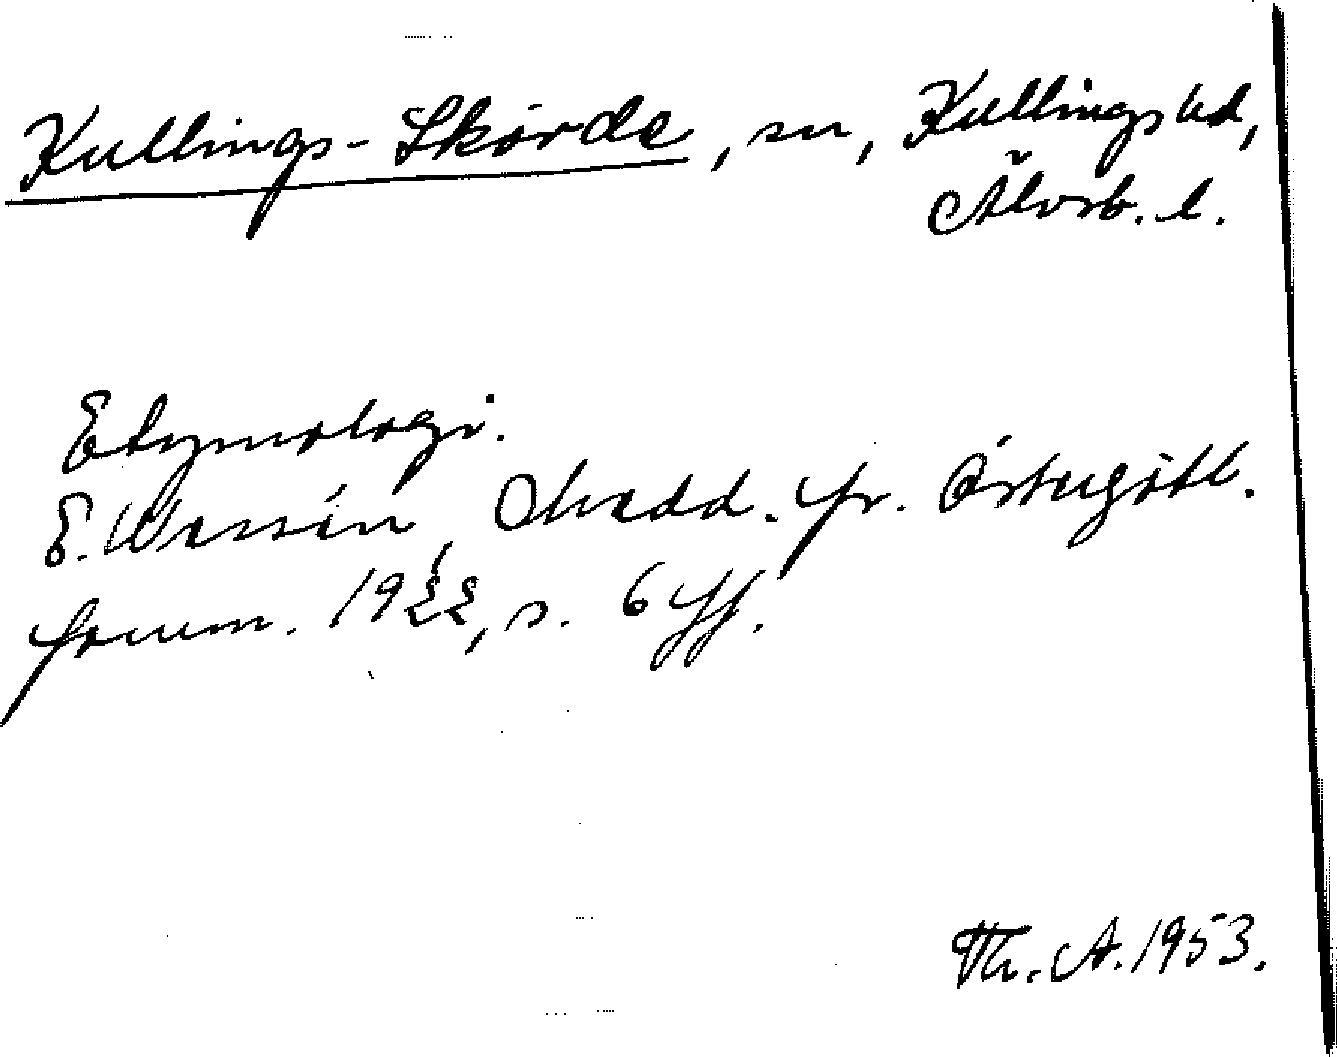 Kullings-Skörde, sn, Kullings hd,
Älvsb. l.
Etymologi.
E. Wessén, Medd. fr. Östergötl.
fornm. 1922, s. 6 ff.
Th. A. 1953.